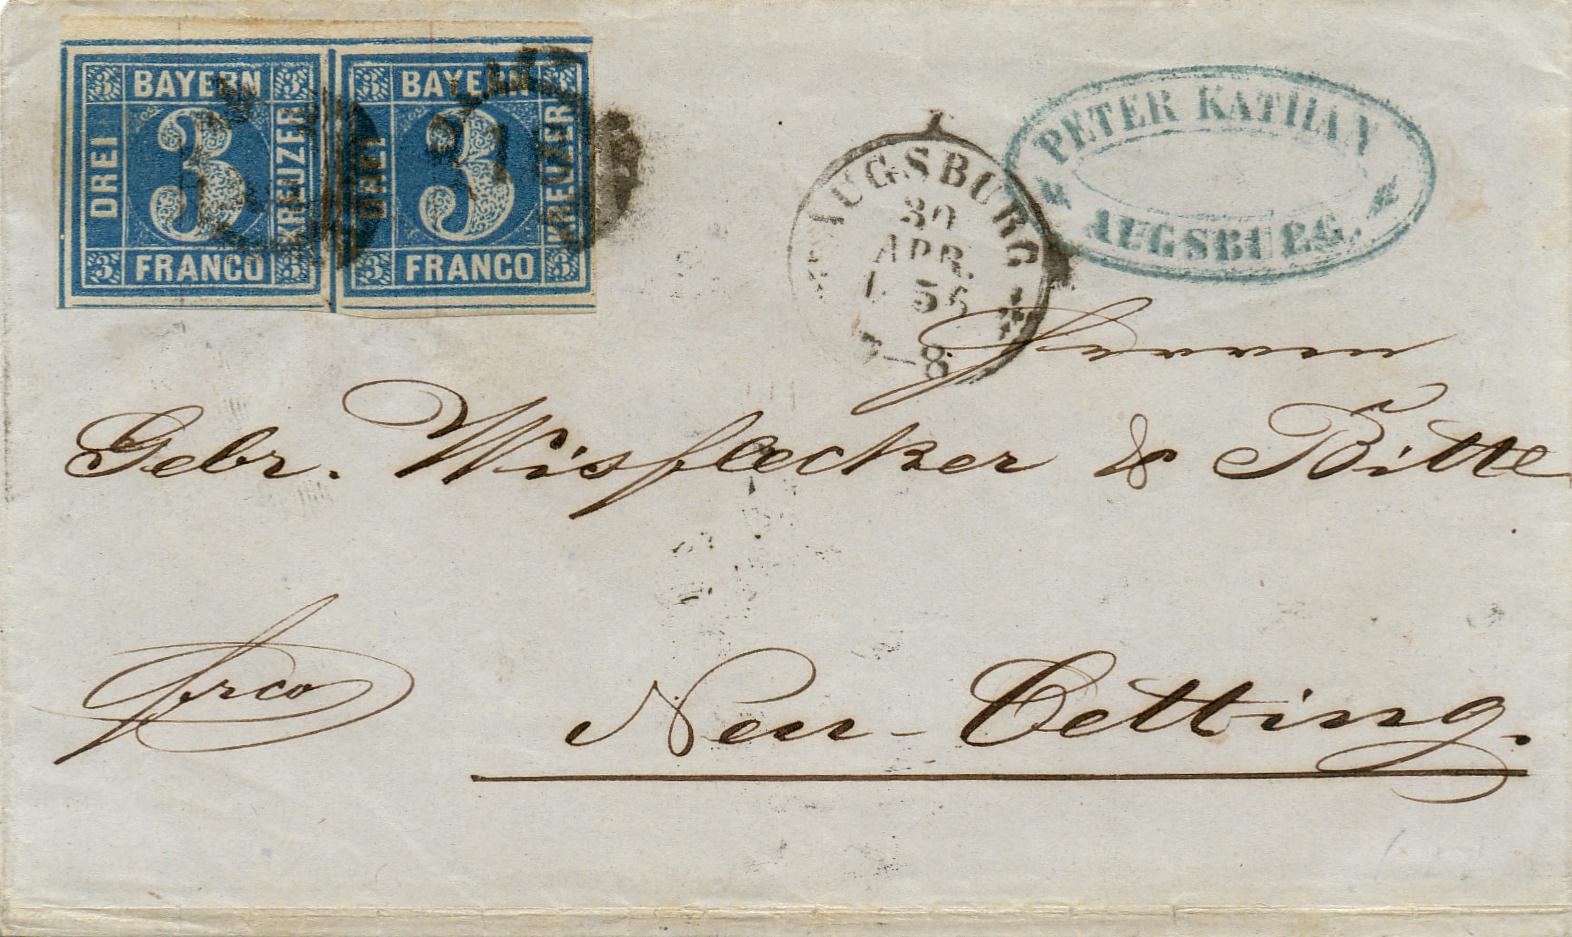 BAYERN
DREI
3
KREUZER
FRANCO
BAYERN
DREI
3
KREUZER
FRANCO
AUGSBURG
30
APR.
56
8
PETER KATHAN
AUGSBURG.
Herrn
Gebr. Wisflecker & Bitte
frco
Neu-Oetting.